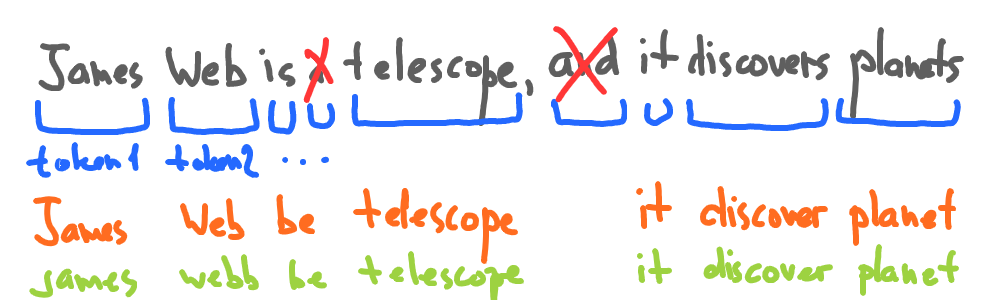 James Web is a telescope, and it discovers planets
token1 token2 ...
James Web be telescope it discover planet
james webb be telescope it discover planet